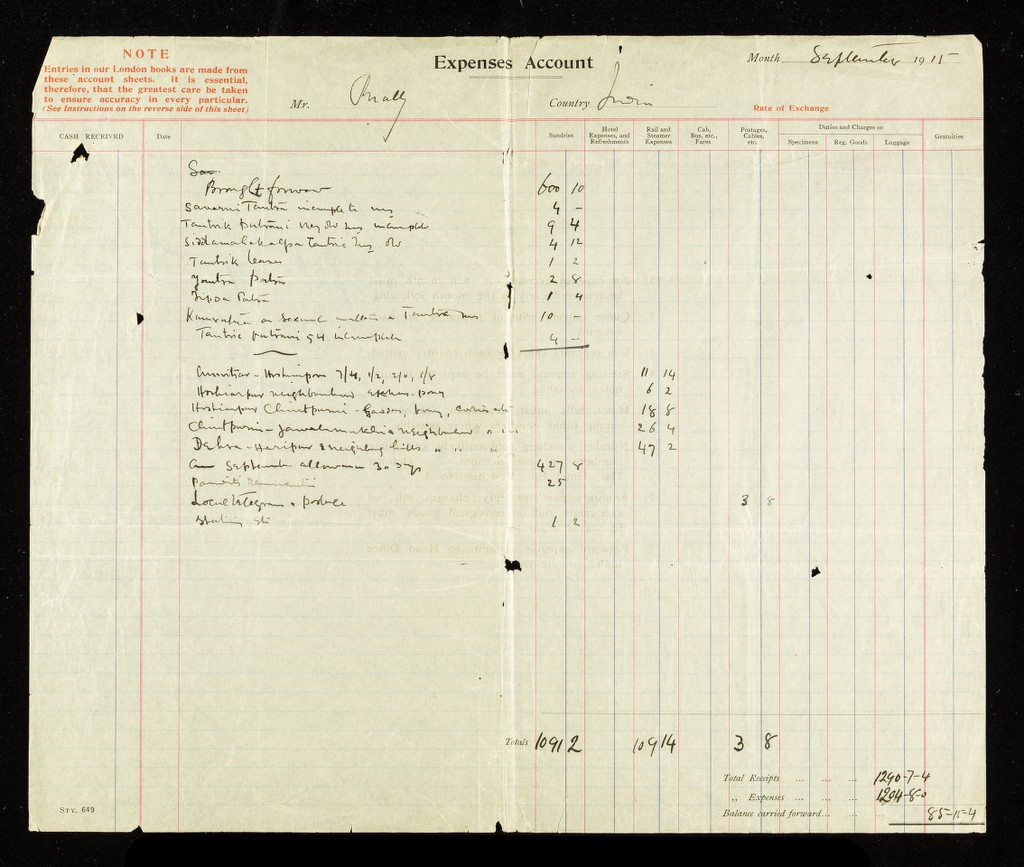 NOTE
Entries in our London books are made from
these account sheets. It is essential,
therefore, that the greatest care be taken
to ensure accuracy in every particular.
(See Instructions on the reverse side of this sheet)
Expenses Account
Month September 1915
Mr.
Country
Rate of Exchange
CASH RECEIVED
Date
Sundries
Hotel Expenses, and Refreshments
Rail and Steamer Expenses
Cab, Bus, etc., Fares
Postages, Cables, etc.
Duties and Charges on
Specimens
Reg. Goods
Luggage
Gratuities
Brought forward 600 10
Tantra incomplete ms 4 –
Tantrik patrani old ms incomplete 9 4
Tantric ms old 4 12
Tantrik leaves 1 2
Yantra patra 2 8
patra 1 4
on Sexual matters a Tantra ms 10 –
Tantric patrani 54 incomplete 4 –
Amritsar - Hoshiarpore 7/4, 1/2, 2/0, 1/8 11 14
Hoshiarpur neighbourhood pony 6 2
Hoshiarpur Chintpurni - pony, coolies etc 18 8
Chintpurni - Jawalamukhi & neighbourhood 26 4
Dehra - Haripur & neighbouring hills 47 2
September allowance 30 days 427 8
25
Local telegrams & postage 3 8
1 2
Totals 1091 2 109 14 3 8
Total Receipts ... ... ... 1290-7-4
„ Expenses ... ... ... 1204-8-0
Balance carried forward... ... 85-15-4
STY. 649